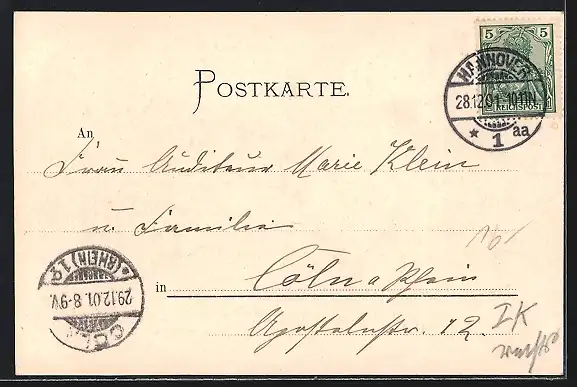 5 5
REICHSPOST
HANNOVER
28.12.01. 10-11N.
* 1 aa
POSTKARTE.
An
Frau Auditeur Marie Klein
u. Familie
in Cöln a Rhein
Apostelnstr. 12.
CÖLN
29.12.01. 8-9V.
* (RHEIN) 1 *
IK